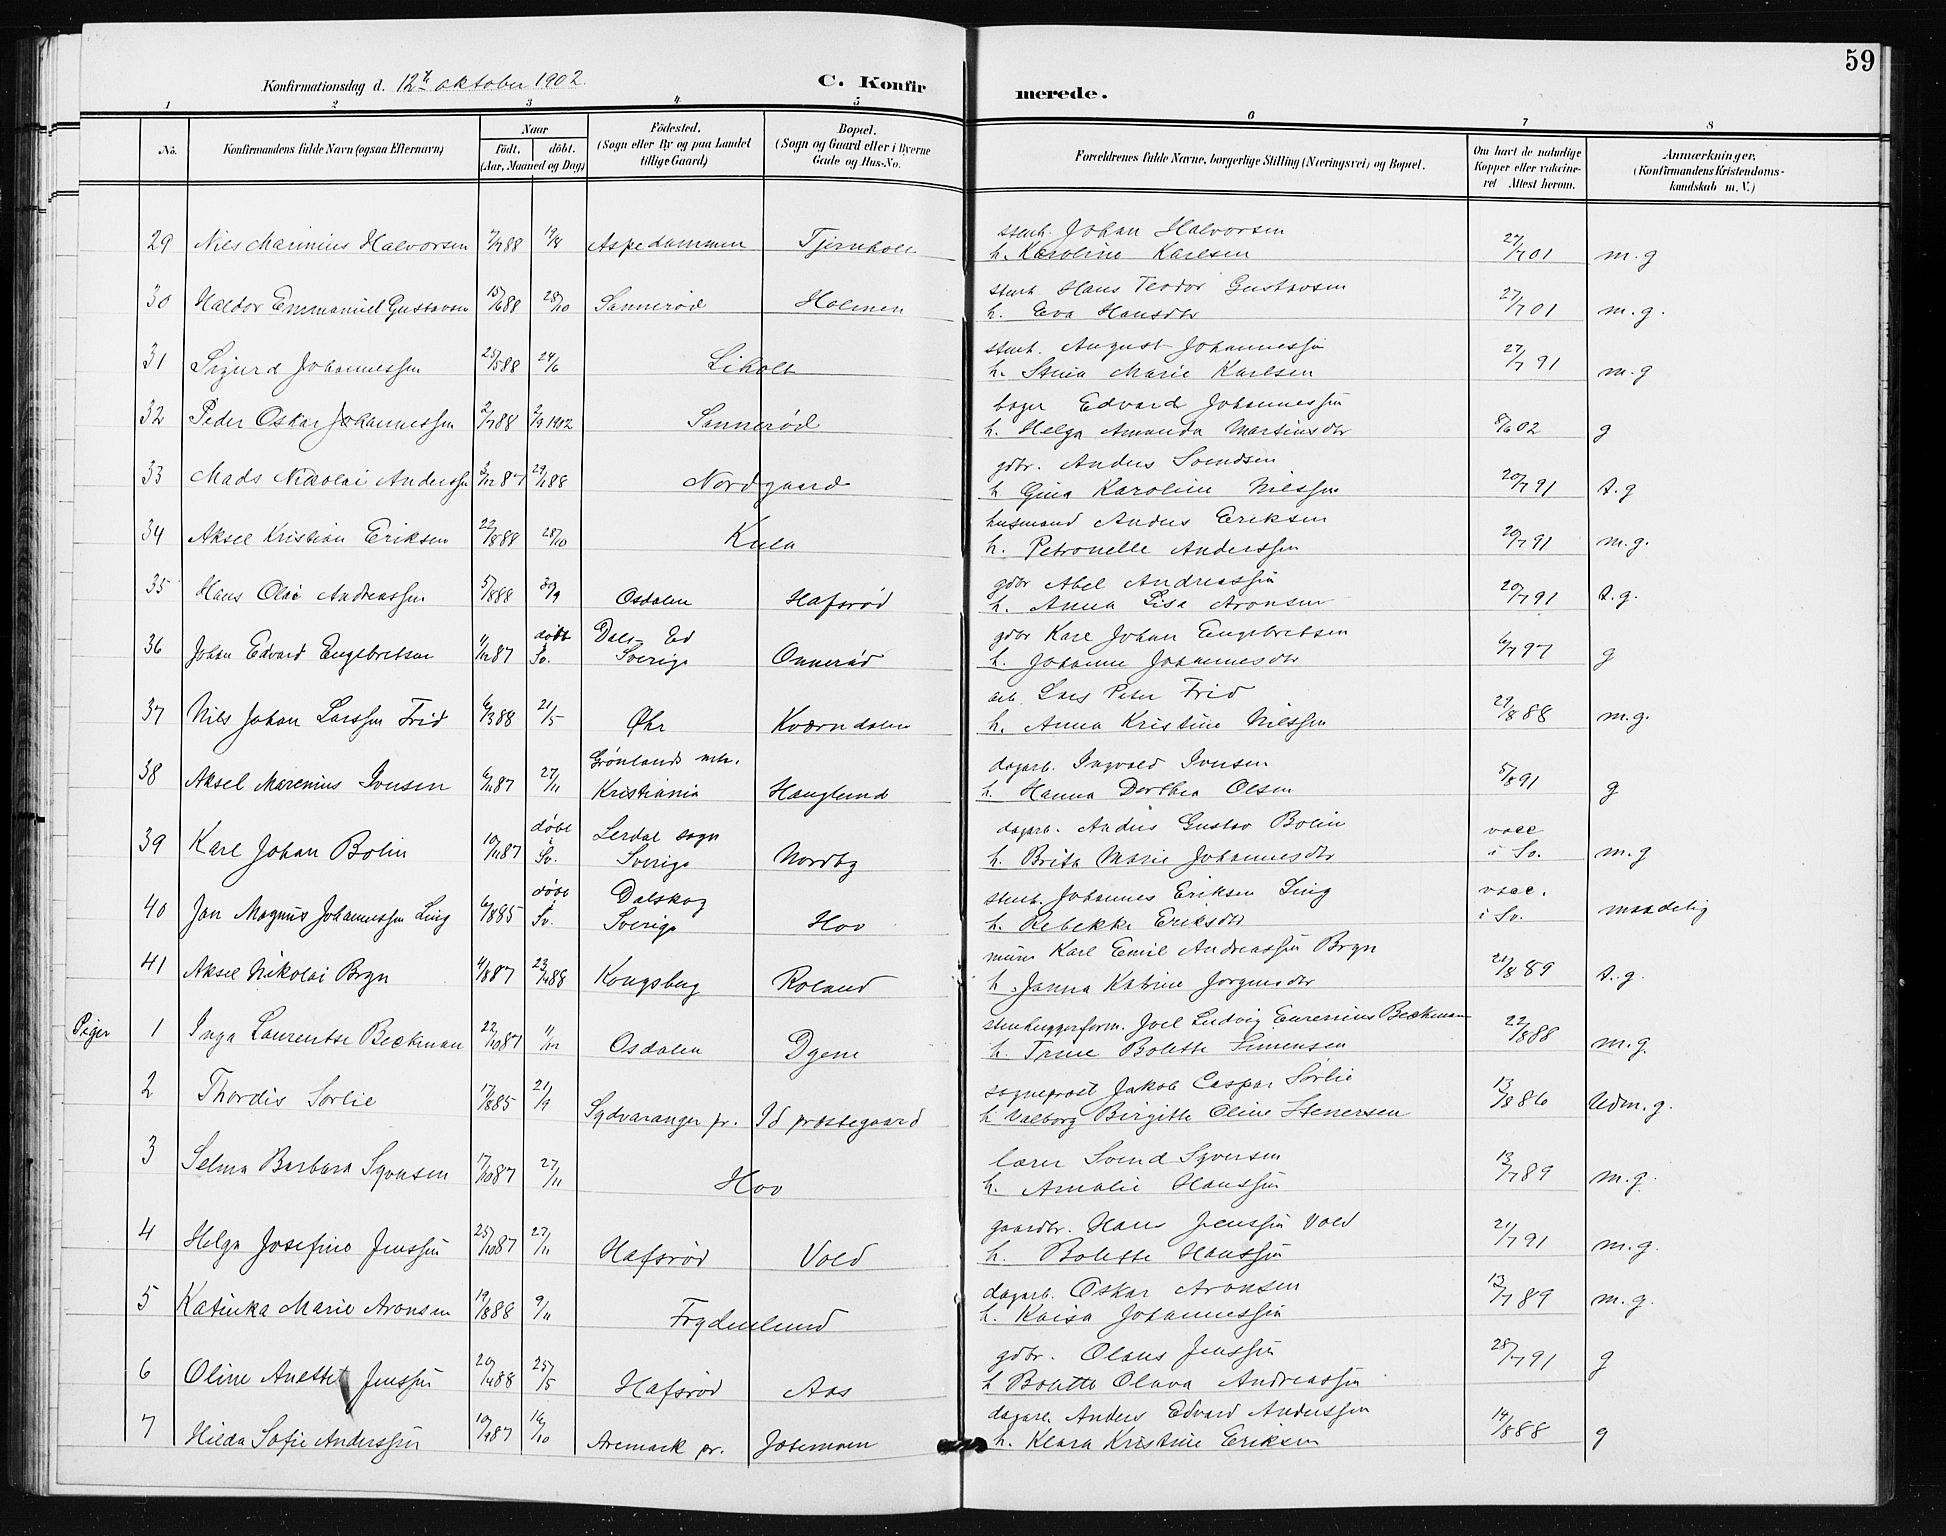 59
Konfirmationsdag d. 12te oktober 1902. C. Konfirmerede.
1 2 3 4 5 6 7 8
No. Konfirmandens fulde Navn (ogsaa Efternavn) Naar Født. døbt. (Aar, Maaned og Dag) Fødested. (Sogn eller By og paa Landet tillige Gaard) Bopæl. (Sogn og Gaard eller i Byerne Gade og Hus-No. Forældrenes fulde Navne, borgerlige Stilling (Næringsvei) og Bopæl. Om havt de naturlige Kopper eller vakcineret Attest herom. Anmærkninger. (Konfirmandens Kristendomskundskab m. V.)
29 Nils Marinius Halvorsen 7/7 88 19/8 Aspedammen Tjernholt stenh. Johan Halvorsen
h. Karoline Karlsen 27/7 01 m.g
30 Haldor Emmanuel Gustavsen 15/6 88 28/10 Sannerød Holmen stenh. Hans Teodor Gustavsen
h. Eva Hansdtr 27/7 01 m.g.
31 Sigurd Johannessen 25/5 88 24/6 Liholt stenh. August Johannessen
h. Stina Marie Karlsen 27/7 91 m.g
32 Peder Oskar Johannessen 2/7 88 1902 Sannerød bager Edvard Johannessen
h. Helga Amanda Martinsdtr 8/6 02 g
33 Mads Nikolai Anderssen 2/12 87 29/1 88 Nordgaard gdbr. Anders Svendsen
h Gina Karoline Nilssen 20/7 91 t.g
34 Aksel Kristian Eriksen 22/8 88 28/10 Kula husmand Anders Eriksen
h. Petronelle Anderssen 20/7 91 m.g.
35 Hans Olai Andreassen 5/8 88 30/9 Osdalen Hafsrød gdbr Abel Andreassen
h. Anna Lisa Aronsen 20/7 91 t.g.
36 Johan Edvard Engebretsen 1/12 87 døbt i Sv. Dals-Ed Sverige Onnerød gdbr Karl Johan Engebretsen
h. Johanne Johannesdtr 6/7 97 g
37 Nils Johan Larssen Frid 6/3 88 21/5 Øhr Kværndalen arb. Lars Peter Frid
h. Anna Kristine Nilssen 29/8 88 m.g.
38 Aksel Marenius Ivensen 6/11 87 27/11 Grønlands mh. Kristiania Hauglund dagarb. Ingvald Ivensen
h. Hanna Dorthea Olsen 5/8 91 g
39 Karl Johan Bolin 10/11 87 døbt i Sv. Lerdal sogn Sverige Nordby dagarb. Anders Gustav Bolin
h. Brita Marie Johannesdtr vacc i Sv. m.g
40 Jan Magnus Johannessen Ling 6/8 85 døbt i Sv. Dalskog Sverige Hov stenh. Johannes Eriksen Ling
h. Rebekke Eriksdtr vacc. i Sv. maadelig
41 Aksel Nikolai Bryn 4/8 87 23/1 88 Kongsberg Roland murer Karl Emil Andreassen Bryn
h. Janna Katrine Jørgensdtr 21/8 89 t.g.
Piger 1 Inga Laurentse Beckman 22/10 87 11/12 Osdalen Dyene stenhuggerform. Joel Ludvig Eurenius Beckman
h. Trine Bolette Simensen 22/8 88 m.g
2 Thordis Sørlie 17/8 85 21/9 Sydvaranger pr. Id præstegaard sogneprest Jakob Caspar Sørlie
h Valborg Birgitte Oline Stenersen 13/8 86 Udm.g.
3 Selma Barbara Syversen 17/10 87 27/11 Hov lærer Svend Syversen
h. Amalie Hanssen 13/7 89 m.g.
4 Helga Josefine Jenssen 25/10 87 27/11 Hafsrød Vold gaardbr. Hans Jenssen Vold
h. Bolette Hanssen 21/7 91 m.g.
5 Katinka Marie Aronsen 19/8 88 9/11 Frydenlund dagarb. Oskar Aronsen
h. Kaisa Johannessen 13/7 89 m.g.
6 Oline Anette Jenssen 20/4 88 25/5 Hafsrød Aas gdbr. Olaus Jenssen
h Bolette Olava Andreassen 28/7 91 g
7 Hilda Sofie Anderssen 10/9 87 16/10 Aremark pr. Josemoen dagarb. Anders Edvard Anderssen
h. Klara Kristine Eriksen 14/8 88 g